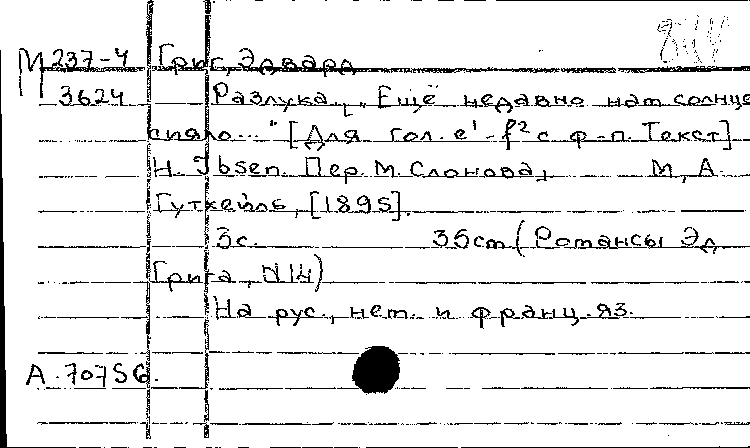 М 237-4 Григ, Эдвард
3624 Разлука. „Ещё недавно нам солнце
сияло..." [Для гол. e¹-f² с ф-п. Текст]
H. Ibsen. Пер. М. Слонова, М, А.
Гутхейль, [1895].
3с. 35cm (Романсы Эд.
Грига, N 14)
На рус., нем. и франц. яз.
А. 70756.